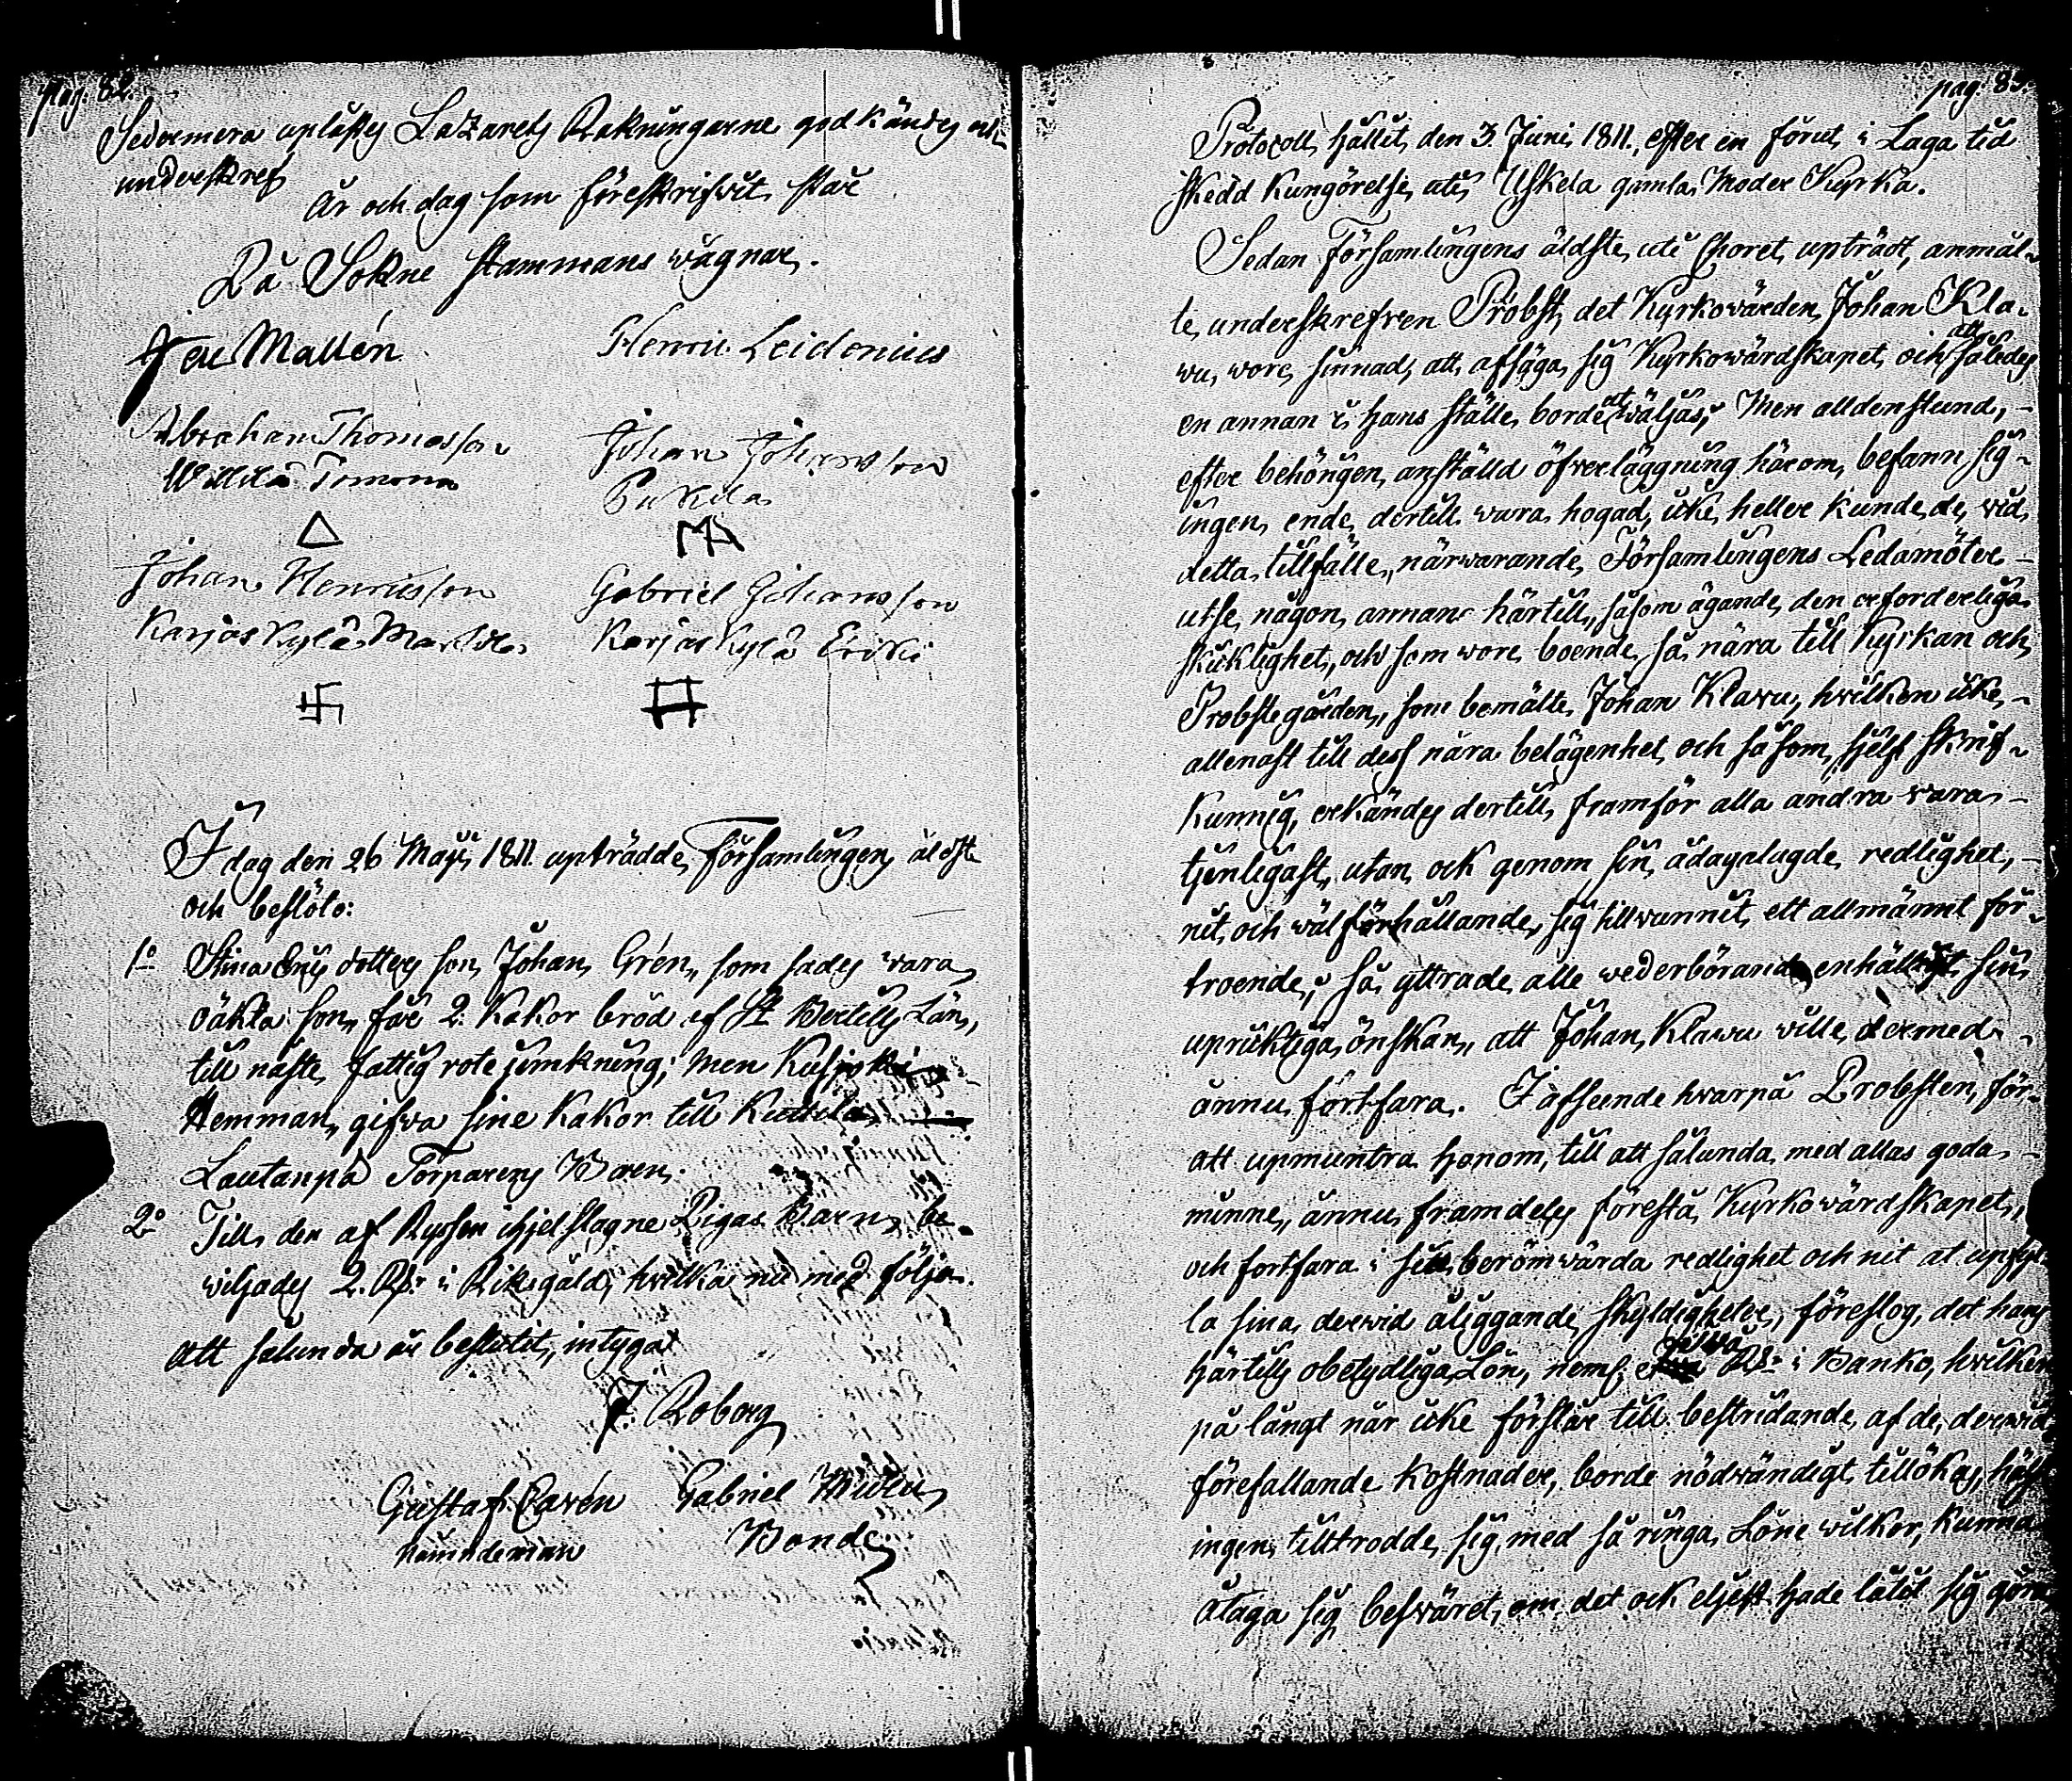 pag. 82.
Sedermera uplästes Lazarets Räkningarne godkändes och
underskrefs
År och dag som föreskrifwit står
På Sokne stammans wägnar.
Mallén
Henric Leidenius
Abraham Thomasson
Johan Johansson
Pukkila
Johan Henricsson
Gabriel Johansson
Karjaskylä Markula
Karjaskylä Erikki
I dag den 26 Maji 1811 uppträdde Församlingens äldste
och beslöto:
1o Stina dotters son, Johan Grén, som sades wara
oäkta son, får 2. Kakor bröd af St Bertils Län,
till nästa fattig rote jemkning; men
Hemman, gifwa sine Kakor till
Lautanpä Torparens Barn.
2o Till den af Ryssen ihjelslagne Barn, be-
wiljades 2. Rdr i Riksgäld, hwilka nu med följa.
Att sålunda är beslutit, intygar
J. Roberg
Gustaf Carén Gabriel
nämndeman Bonde
pag. 83.
Protocoll, hållit den 3. Juni 1811, efter en förut i Laga tid
skedd Kungörelse, uti Uskela gamla Moder Kyrka.
Sedan Församlingens äldste, uti Choret, uppträdt, anmäl-
te, underskrefven Probst, det Kyrkowärden, Johan Kla-
wu, wore sinnad, att afsäga sig Kyrkowärdskapet, och att således
en annan i hans ställe borde utwäljas; Men alldenstund,
efter behörigen anställd öfverläggning härom, befann sig
ingen, ende dertill wara hogad, icke heller kunde, de, wid
detta tillfälle, närwarande, Församlingens Ledamöter
utse, någon annan härtill, såsom ägande den erforderliga
skicklighet, och som wore boende så nära till Kyrkan och
Probstegården, som bemälte Johan Klawu, hwilken icke
allenast till dess nära belägenhet, och såsom sjelf skrif-
kunnig, erkändes dertill, framför alla andra wara
tjenligast, utan ock genom sin ådagalagde redlighet,
nit, och wälförhållande, sig tillwunnit ett allmännt för-
troende; så yttrade alle wederbörande enhälligt sin
upriktiga önskan, att Johan Klawu wille dermed
ännu fortfara. I afseende hwarpå Probsten, för
att upmuntra honom, till att sålunda, med allas goda
minne, ännu framdeles förestå Kyrkowärdskapet,
och fortfara i sin berömwärda redlighet och nit at upfyl-
la sina derwid åliggande skyldigheter, föreslog, det hans
härtills obetydliga Lön, neml. Rdr i Banko, hwilken
på långt när icke förslår till bestridande af de, derwid
förefallande Kostnader, borde nödwändigt tillökas, hälst
ingen tilltrodde sig, med så ringa Löne wilkor, kunna
åtaga sig beswäret, om det ock eljest hade låtit sig göra